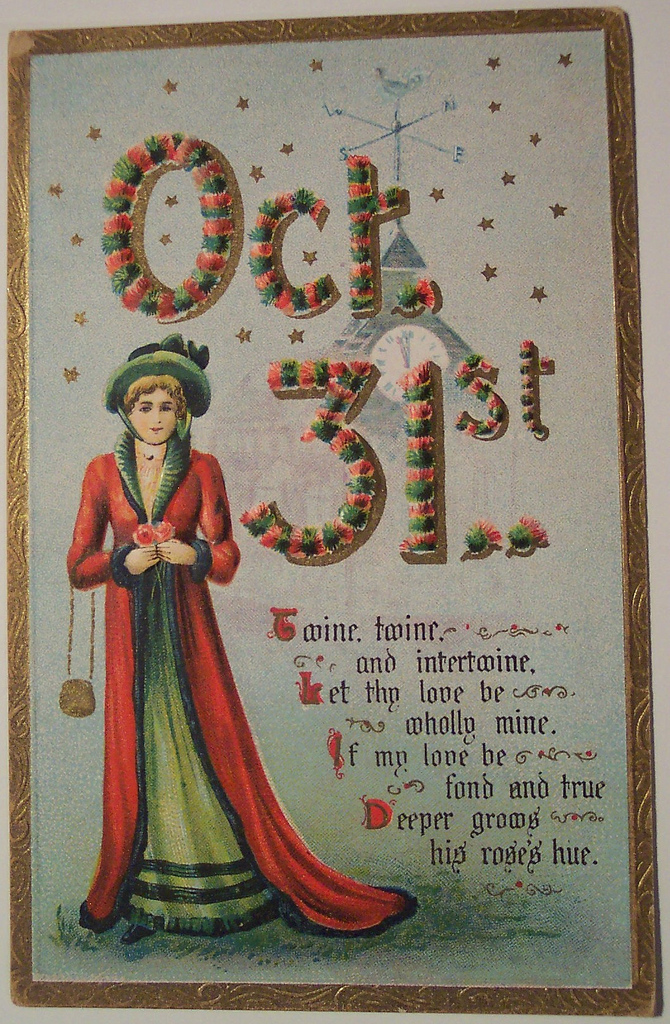 W N
S E
Oct.
31st..
Twine, twine,
and intertwine,
Let thy love be
wholly mine.
If my love be
fond and true
Deeper grows
his rose's hue.